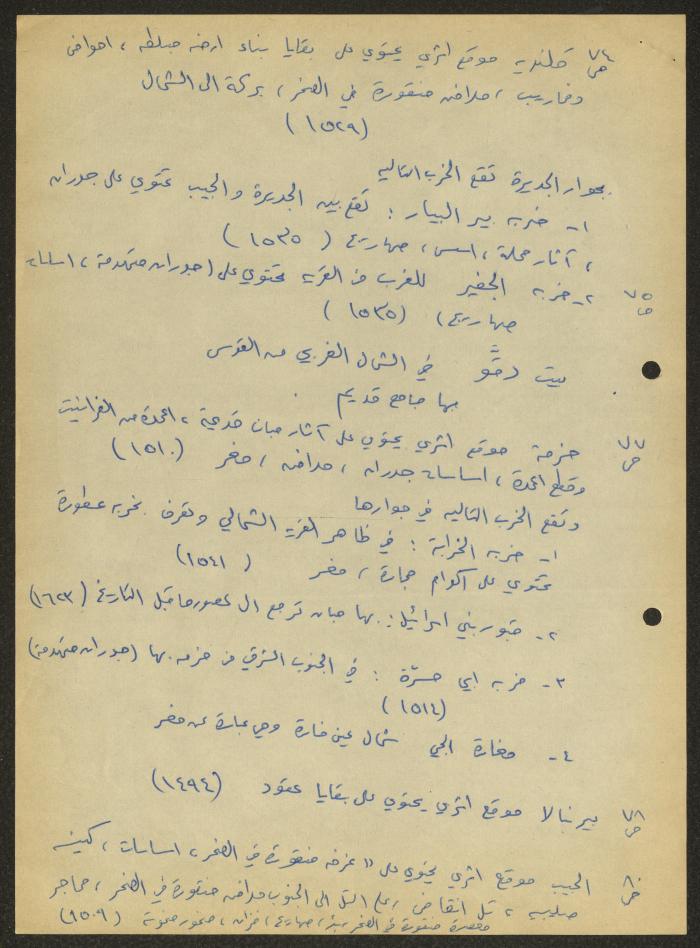 ص ٧٤ قلنديه موقع اثري يحتوي على بقايا بناء ارضه مبلطه ، احواض
وغاريب ، مدافن منقورة في الصخر ، بركة الى الشمال
(١٥٢٩)
بجوار الجديرة تقع الخرب التاليه
١- خربه بير البيار : تقع بين الجديرة والجيب تحتوي على جدران
، آثار محلة ، اسس ، صهاريج (١٥٣٥)
ص ٧٥ ٢- خربه الجفير للغرب من القريه تحتوي على (جدران متهدمة ، اساسات
صهاريج) (١٥٣٥)
بيت دقّو في الشمال الغربي من القدس
بها جامع قديم
ص ٧٧ حزمة موقع اثري يحتوي على آثار مبان قديمة ، اعمدة من الغرانيت
وقطع اعمدة ، اساسات جدران ، مدافن ، مغر (١٥١٠)
وتقع الخرب التاليه في جوارها
١- خربه الخرابة : في ظاهر القريه الشمالي وتعرف بخربه عطورة
تحتوي على اكوام حجارة ، مغر (١٥٤١)
٢- قبور بني اسرائيل : بها مبان ترجع الى عصور ما قبل التاريخ (١٦٢٣)
٣- خربه ابي مسرّة : في الجنوب الشرقي من حزمه بها (جدران متهدمة)
(١٥١٤)
٤- مغارة الجي شمال عين فارة وهي عبارة عن مغر
ص ٧٨ بير نبالا موقع اثري يحتوي على بقايا عقود (١٤٩٤)
ص ٨٠ الجيب موقع اثري يحتوي على " غرفه منقورة في الصخر ، اساسات ، كنيسه
صليبيه ، تل انقاض ، على التل الى الجنوب مدافن منقورة في الصخر ، محاجر
معصرة منقورة في الصخر ، صهاريج ، خزان ، صخور منحوتة (١٥٠٩)